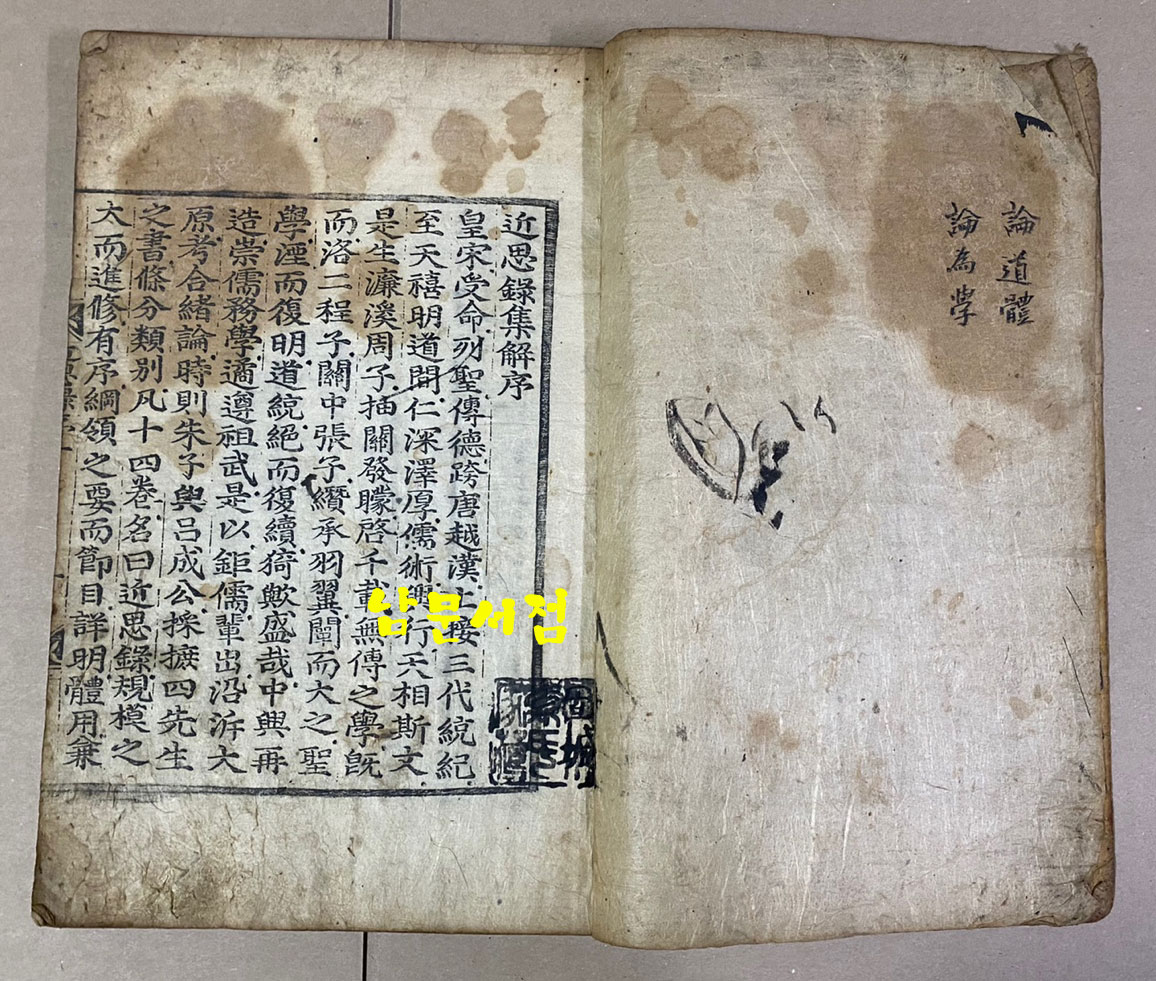 論道體
論為学
近思錄集解序
皇宋受命列聖傳德跨唐越漢上接三代綂紀
至天禧明道間仁深澤厚儒術興行天相斯文
是生濂溪周子抽關發矇啓千載無傳之學旣
而洛二程子關中張子纘承羽翼闡而大之聖
學湮而復明道綂絕而復續猗歟盛哉中興再
造崇儒務學遹遵祖武是以鉅儒輩出沿泝大
原考合緖論時則朱子與呂成公採摭四先生
之書條分類別凡十四卷名曰近思錄規模之
大而進修有序綱領之要而節目詳明體用兼
남문서점